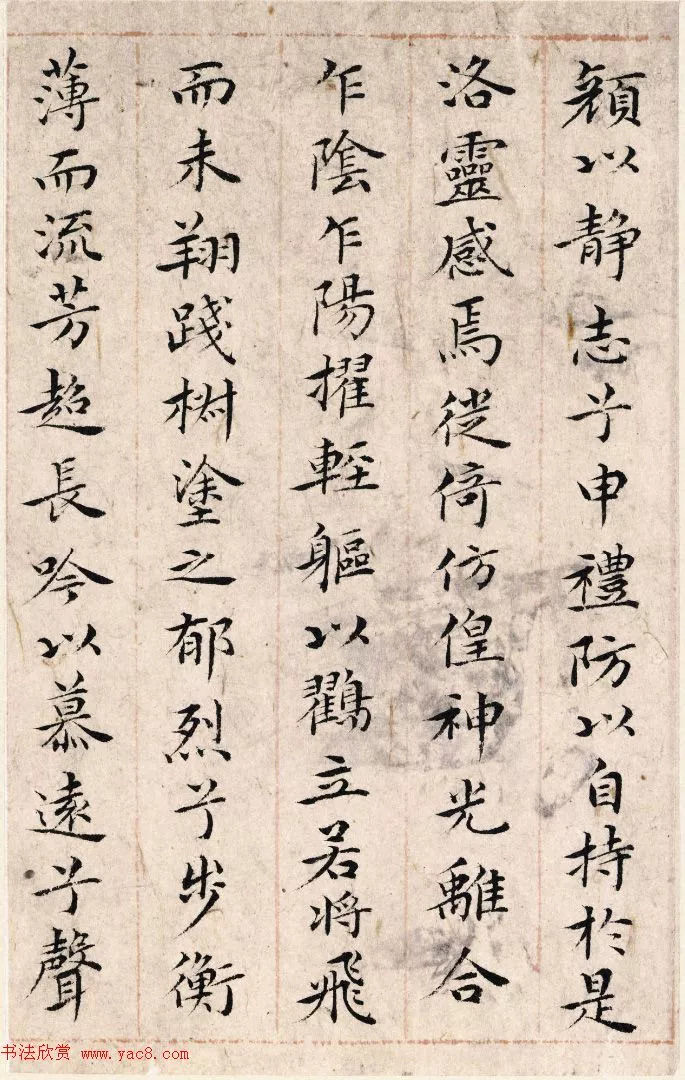 顔以静志兮申禮防以自持於是
洛靈感焉徙倚仿偟神光離合
乍陰乍陽擢輕軀以鸛立若将飛
而未翔踐椒塗之郁烈兮步衡
薄而流芳超長吟以慕遠兮聲
书法欣赏 www.yac8.com